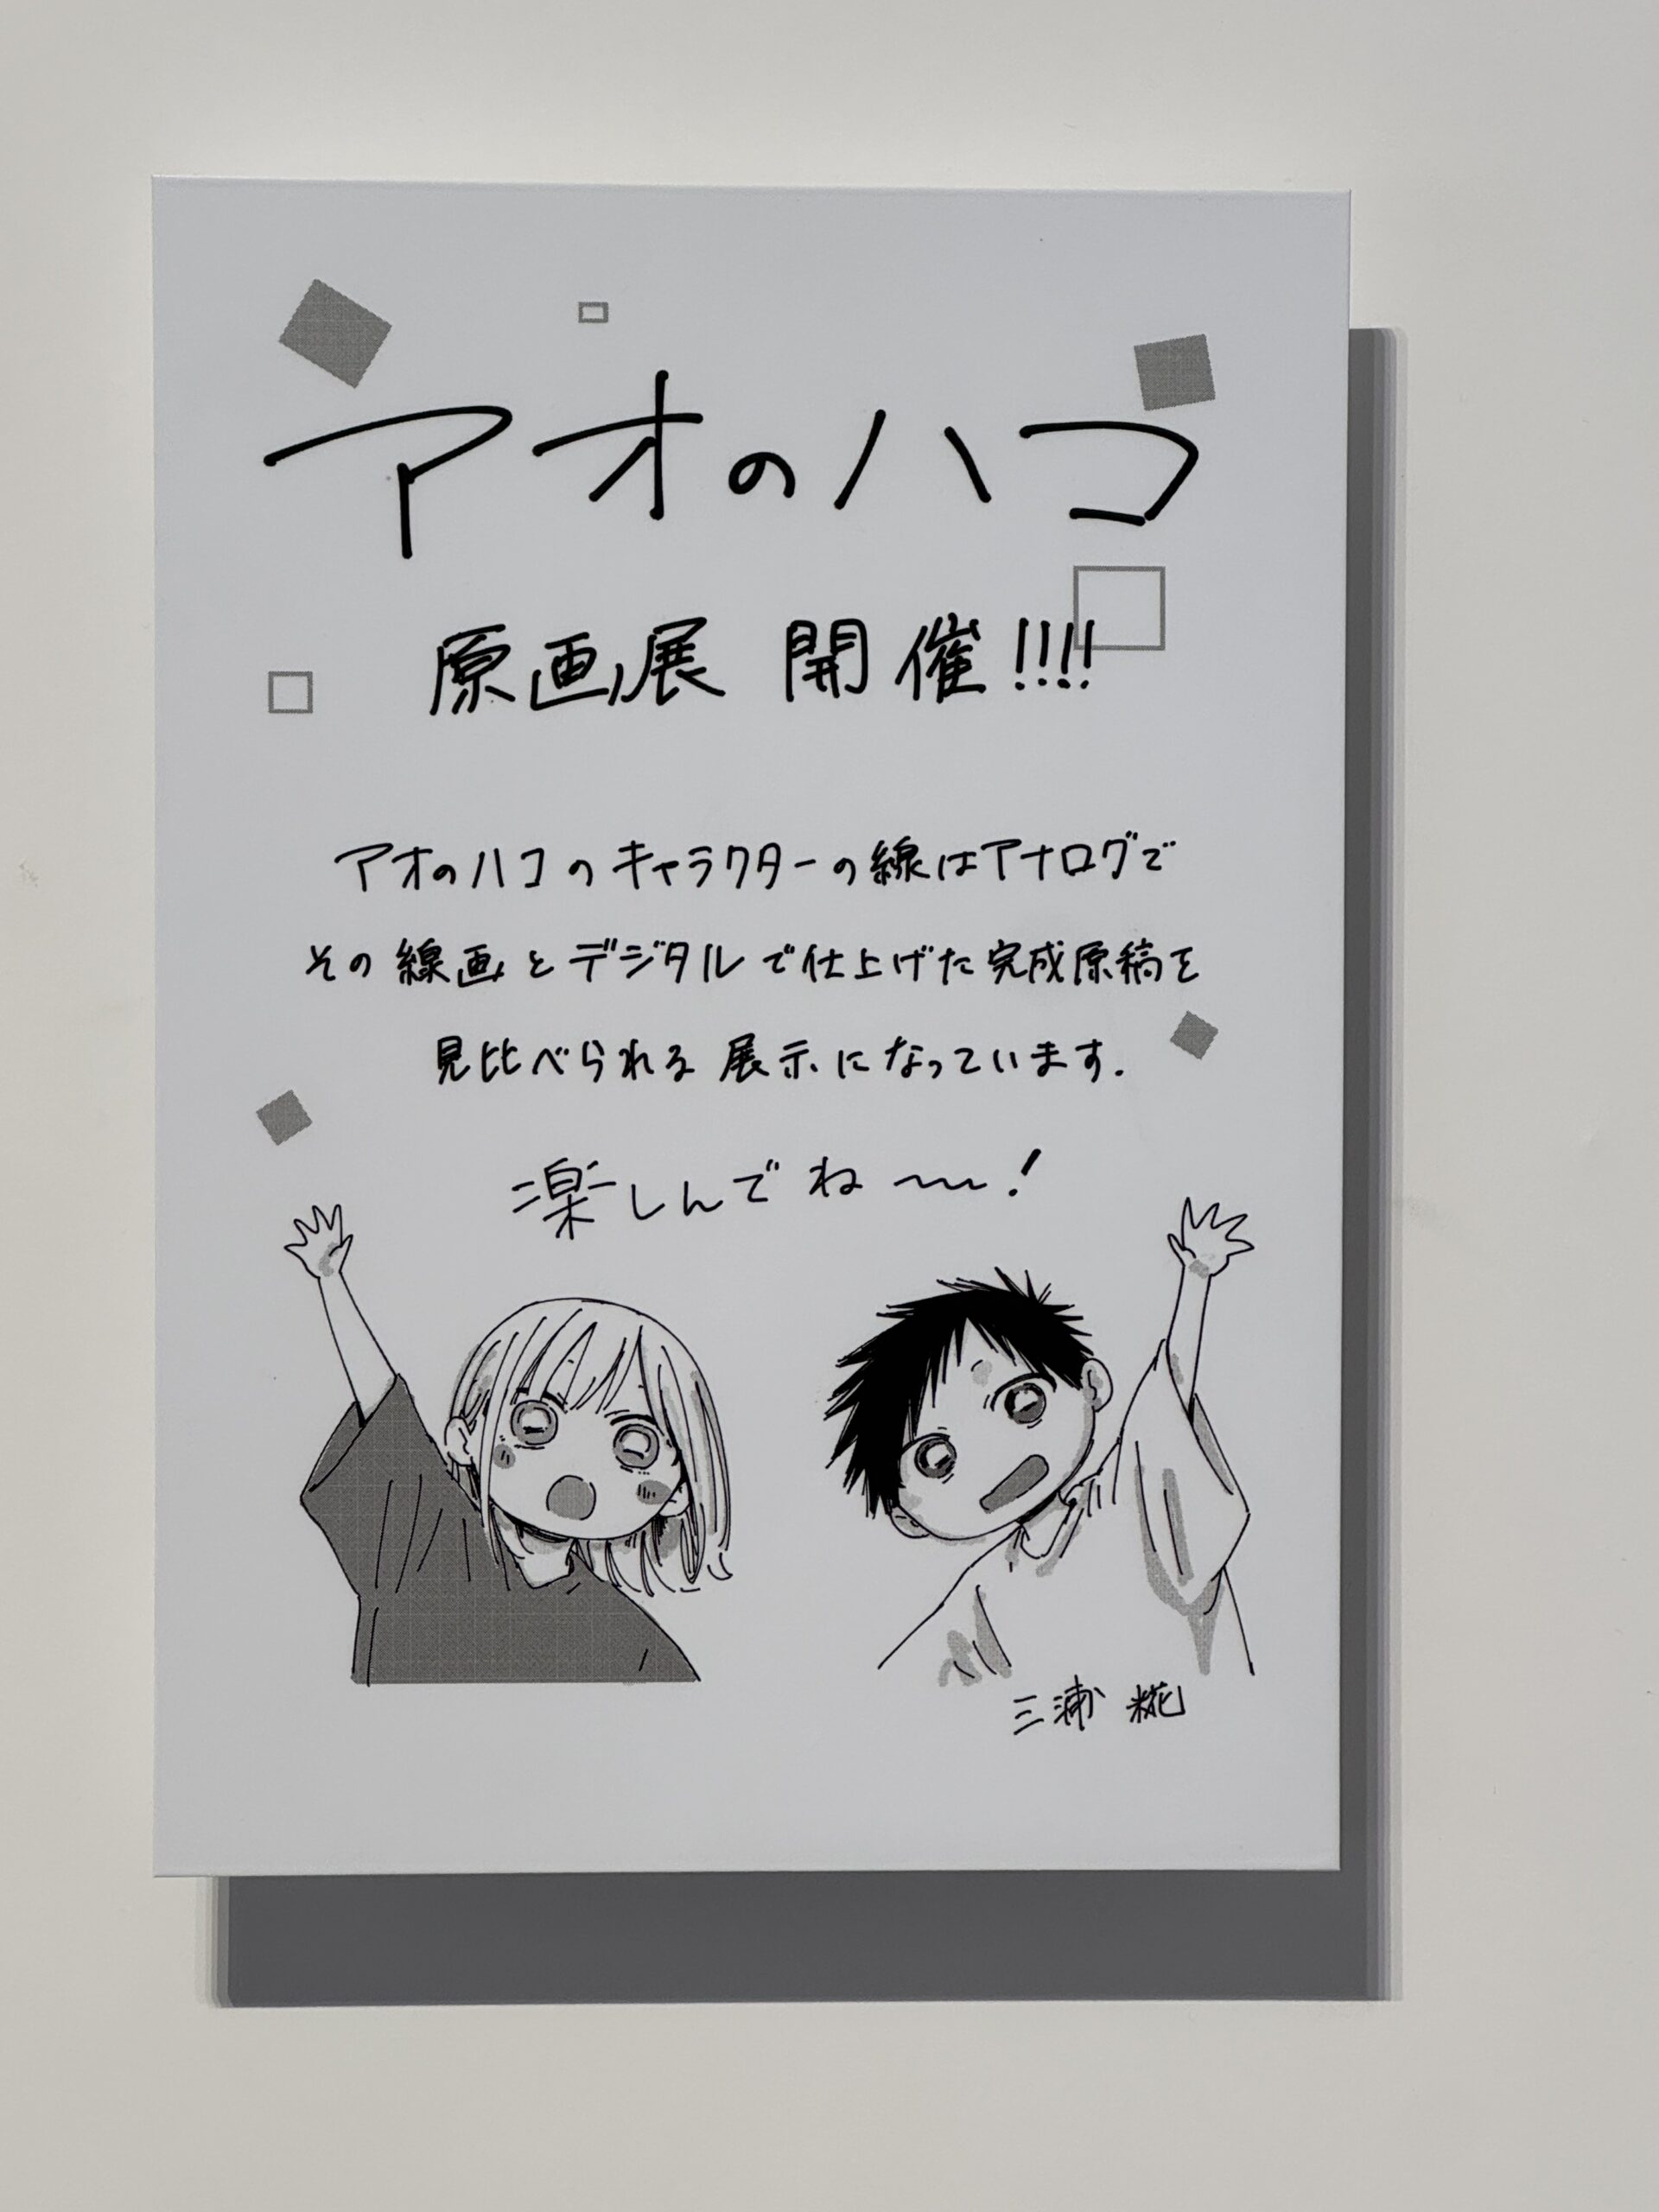 アオのハコ
原画展 開催!!!!
アオのハコのキャラクターの線はアナログで
その線画とデジタルで仕上げた完成原稿を
見比べられる展示になっています.
楽しんでね〜!
三浦 糀